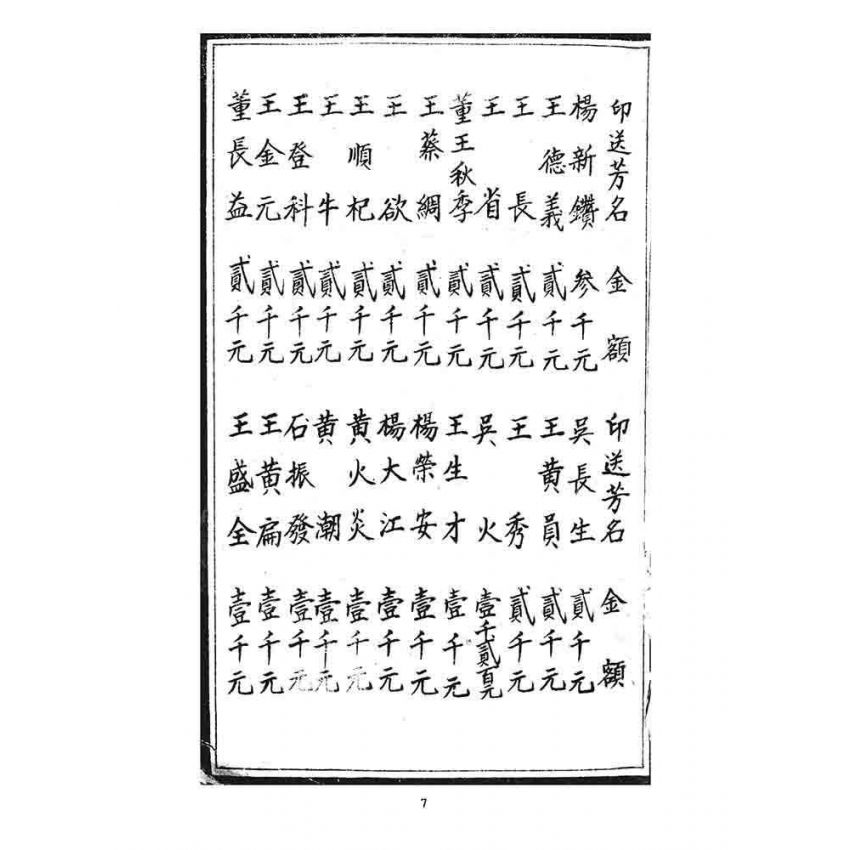 印送芳名 金額 印送芳名 金額
楊新鑽 參千元 吳長生 貳千元
王德義 貳千元 王黄員 貳千元
王長 貳千元 王秀 貳千元
王省 貳千元 吳火 壹千貳百元
董王秋季 貳千元 王生才 壹千元
王蔡綢 貳千元 楊榮安 壹千元
王欲 貳千元 楊大江 壹千元
王順杞 貳千元 黄火炎 壹千元
王牛 貳千元 黄潮 壹千元
王登科 貳千元 石振發 壹千元
王金元 貳千元 王黄扁 壹千元
董長益 貳千元 王盛全 壹千元
7